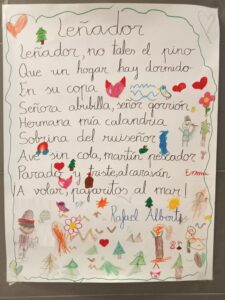 Leñador
Leñador, no tales el pino
Que un hogar hay dormido
En su copa
Señora abubilla, señor gorrión
Hermana mía calandria
Sobrina del ruiseñor
Ave sin cola, martín pescador
Parado y triste, alcaraván
¡A volar, pajaritos al mar!
Rafael Alberti